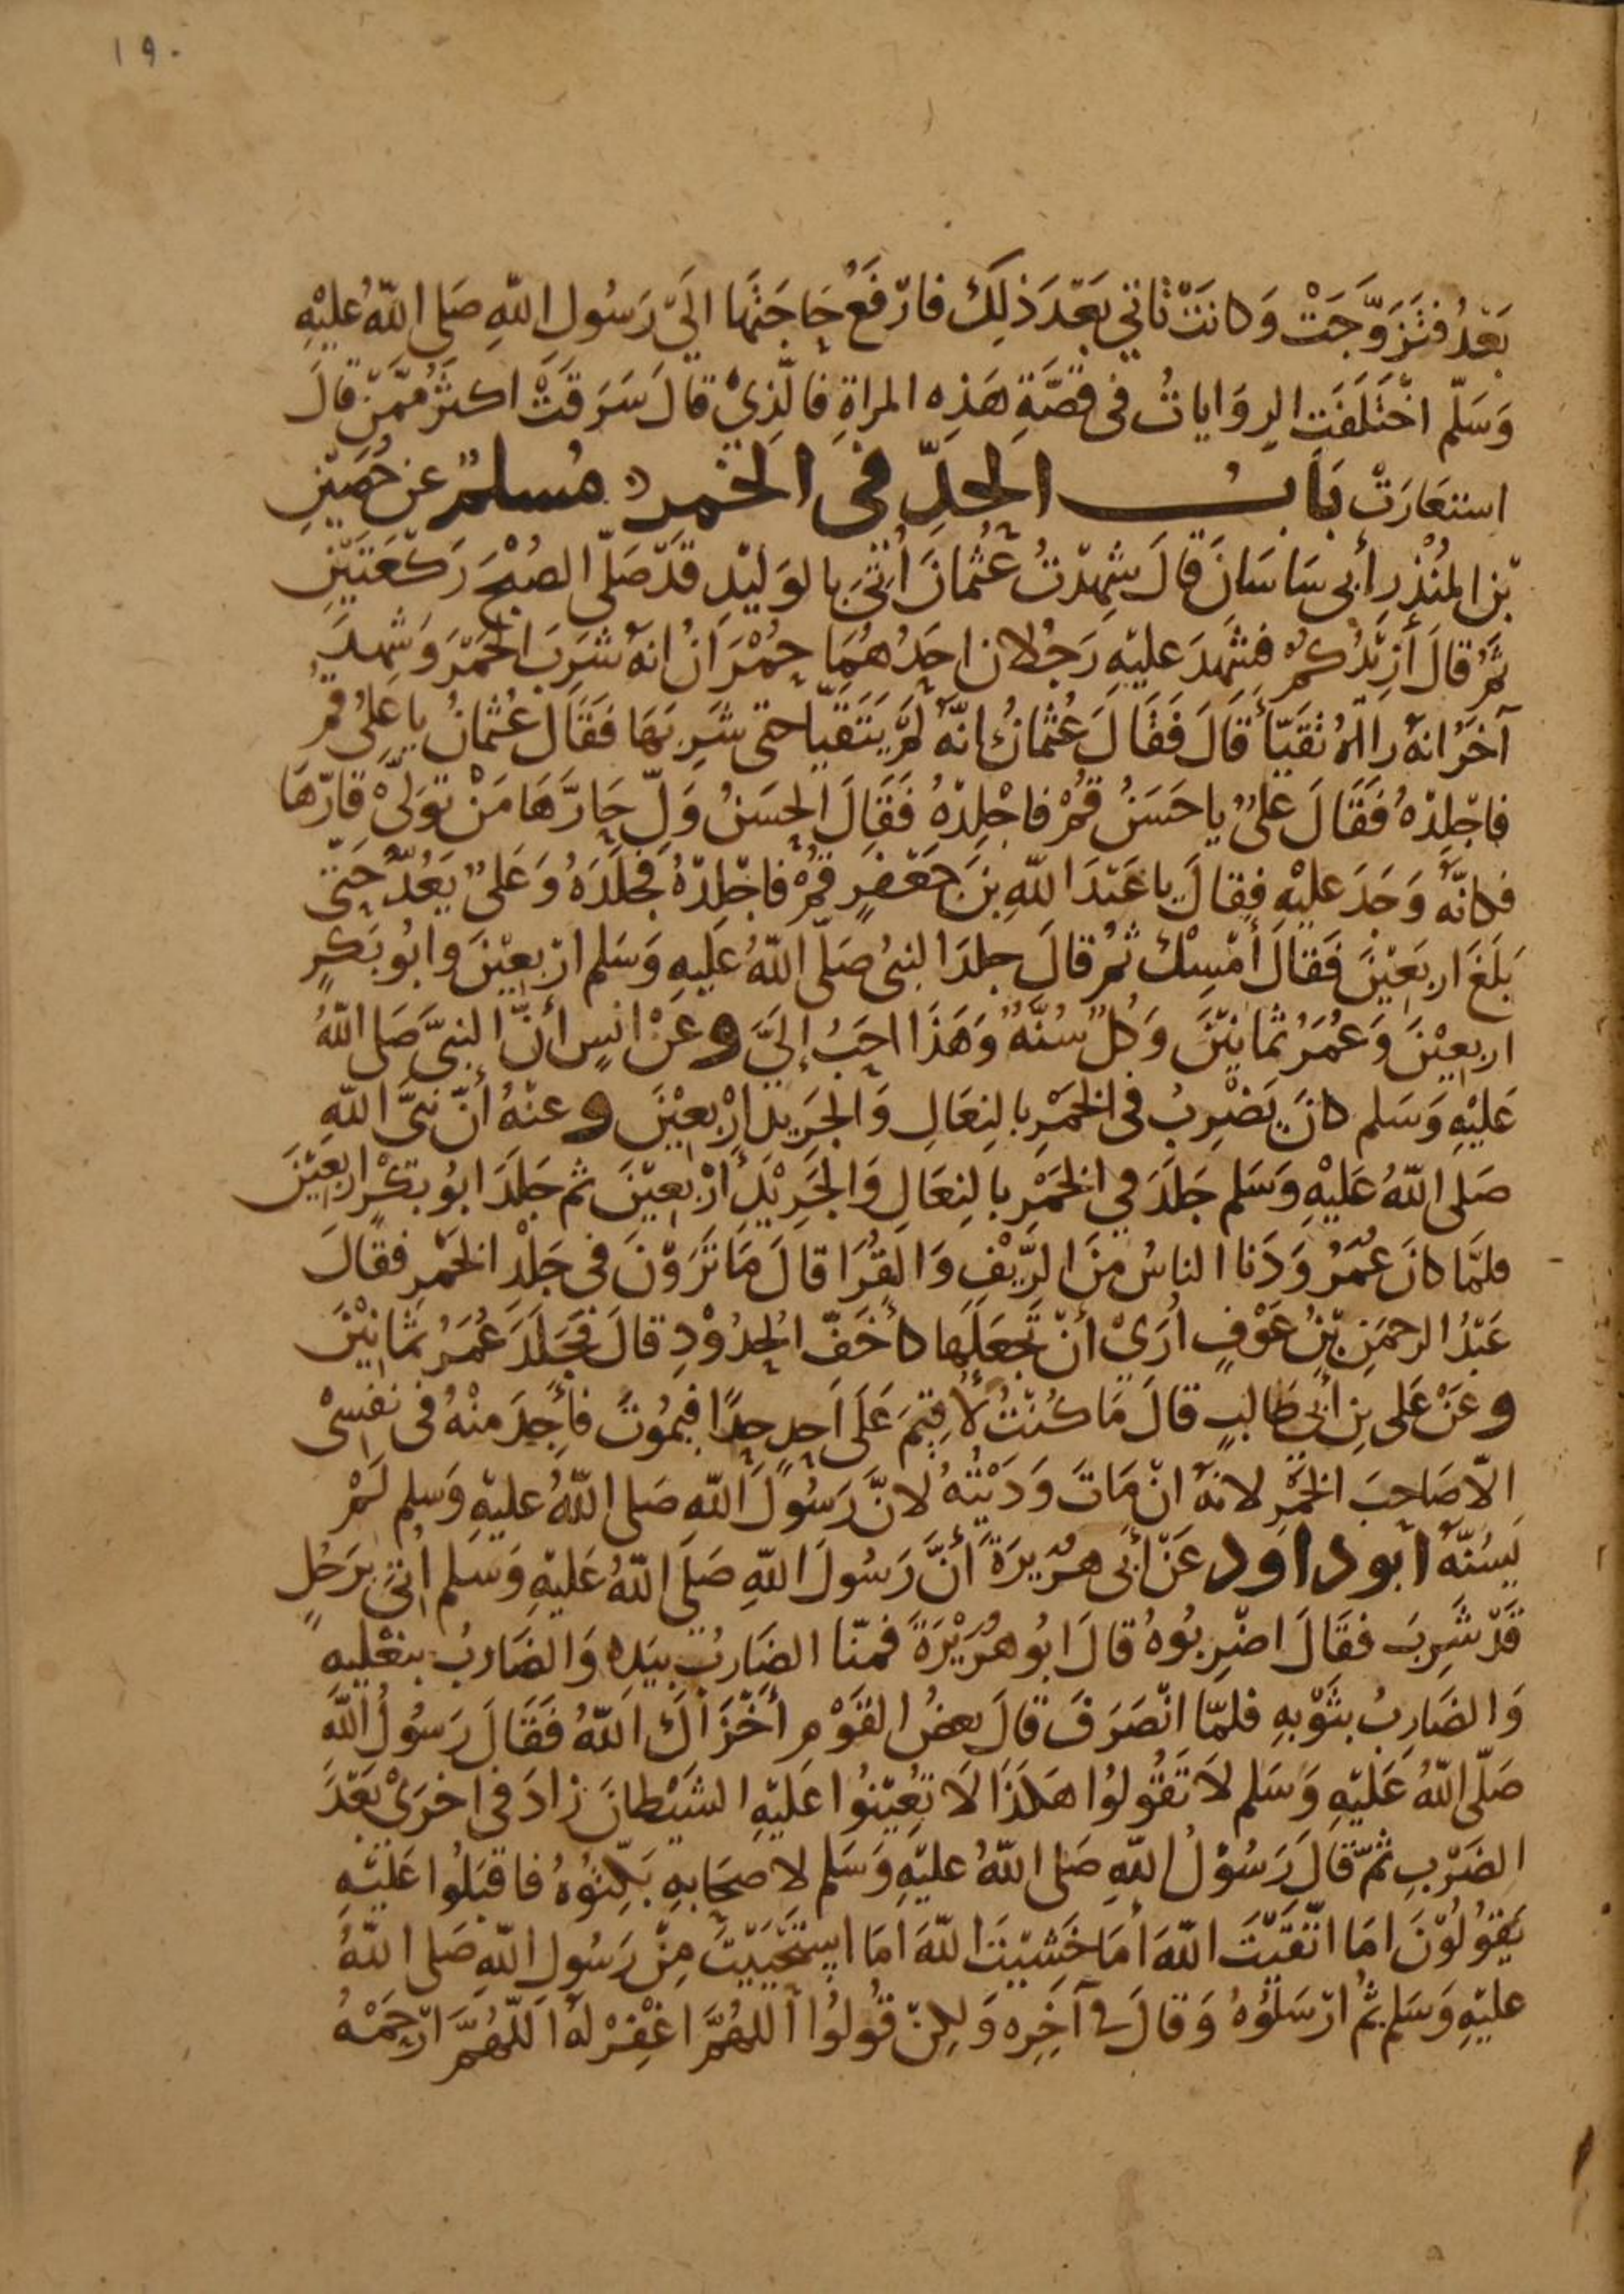 ١٩٠
بَعْدُ فَتَزَوَّجَتْ وَكَانَتْ تَأتي بَعْدَ ذلِكَ فارْفَعُ حَاجَتَهَا الَىَ رَسُول اللهِ صَلى اللهُ عليْهِ
وَسَلّم اخْتَلَفَت الرِوَاياتُ فى قصَّةِ هَذِه المراةِ فالّذِىْ قالَ سَرَقَتْ اكثرُ ممَّنْ قالَ
استعَارَتْ بَابُ الحَدِّ فى الخمر مُسلمٌ عن حُصَيْنِ
بْن المُنْذِرِ أبى سَاسَانَ قالَ شهِدْتُ عُثْمانَ أتىَ بالوَليْدِ قَدْ صَلّى الصُبْحَ رَكعَتَيْنِ
ثمَّ قالَ أزِيْدُكُمْ فشَهِدَ عليْهِ رَجُلان احَدُهُمَا حُمْرَانُ انهُ شَرِبَ الخَمْرَ وَشهِدَ
آخَرُ انهُ رَاهُ تَقَيّأَ قالَ فَقَالَ عُثْمانُ انّهُ لَمْ يَتَقَيّا حتى شَرِبَهَا فَقَالَ عُثْمَانُ يا عَلِىُ قمْ
فاجْلِدْهُ فَقَالَ عَلىٌ يا حَسَنُ قُمْ فاجْلِدْهُ فَقَالَ الحسَنُ وَلِّ حَارَّهَا مَنْ تَوَلىْ قارّهَا
فكانّهُ وَجَدَ عليْهِ فقالَ يا عَبْدَ اللهِ بنَ جَعْفَرٍ قُمْ فاجْلِدْهُ فجلَدَهُ وَعَلىٌ يَعُدُّ حَتى
بَلَغَ اربَعيْنَ فَقَالَ أمْسِكْ ثمُ قالَ جلدَ النبىُ صَلّى اللهُ عَليهِ وَسَلم ارْبعيْنَ وابُو بَكرٍ
اربعيْنَ وَعُمَرُ ثمانيْنَ وَكُلٌ سُنّهٌ وَهَذَا احَبُ إلىَّ وعَنْ انسٍ أنّ النبىَّ صَلى اللهُ
عَليْهِ وَسَلم كانَ يَضْرِبُ فى الخَمْرِ بالنِعَالِ وَالجَرِيدِ ارْبعيْنَ وعنْهُ أنّ نبىَّ اللهِ
صَلى اللهُ عَليْهِ وَسَلم جَلدَ في الخمْرِ بالنِعَالِ وَالجَرِيْدِ ارْبعيْنَ ثم جَلدَ ابُو بَكْرٍ اربعيْنَ
فلمَّا كانَ عُمَرُ وَدَنا الناسُ منَ الرِّيْفِ وَالقُرَا قالَ مَا تَرَوْنَ فى جَلْدِ الخمْرِ فقالَ
عَبْدُ الرحمَنِ بْنُ عَوْفٍ ارَىْ أنْ تجعَلَهَا كأخَفِّ الحدُوْدِ قالَ فجَلَدَ عُمَرُ ثمَانِيْنَ
وعَنْ عَلى بن أبى طَالبٍ قالَ مَا كُنْتُ لأقِيْمَ عَلَى اَحدٍ حَدًا فيَمُوْتَ فأجِدَ منْهُ فى نفسِىْ
الّا صَاحِبَ الخمْرِ لانهُ انْ مَاتَ وَدَيْتُهُ لانَّ رَسُولَ اللهِ صَلى اللهُ عليْهِ وَسَلم لَمْ
يَسُنَّهُ ابو داود عَنْ أبى هُرَيرَةَ أنَّ رَسُولَ اللهِ صَلَى اللهُ عَليْهِ وَسَلم أتىَ برَجُلٍ
قَدْ شَرِبَ فقَالَ اضْرِبُوهُ قالَ ابُو هُرَيْرَةَ فمنّا الضَارِبُ بيَدِه وَالضَارِبُ بنعْليهِ
وَالضَارِبُ بثَوْبهِ فلمّا انْصَرَفَ قالَ بعضُ القَوْمِ أخْزَاكَ اللهُ فَقَالَ رَسُولُ اللهِ
صَلّى اللهُ عَليْهِ وَسَلم لاَ تَقُولُوا هَكذَا لَا تُعِيْنُوا عَليْهِ الشَيْطانَ زادَ فى اخْرَىْ بَعْدَ
الضَرْبِ ثمّ قالَ رَسُوْلُ اللهِ صَلى اللهُ عليْهِ وَسَلم لاصحَابهِ بَكِّتُوْهُ فاقبَلُوا عَليْهِ
يَقُولُوْنَ امَا اتّقَيْتَ اللهَ أمَا خَشيْتَ اللهَ امَا اسْتَحْيَيْتَ مِنْ رَسُولِ اللهِ صَلى اللهُ
عليْهِ وَسَلم ثمُ ارْسَلوُهُ وَقالَ فى آخِرِه وَلكِنْ قُولُوا اللهُمَّ اغْفِرْ لهُ اللّهُمَّ ارْحَمْهُ